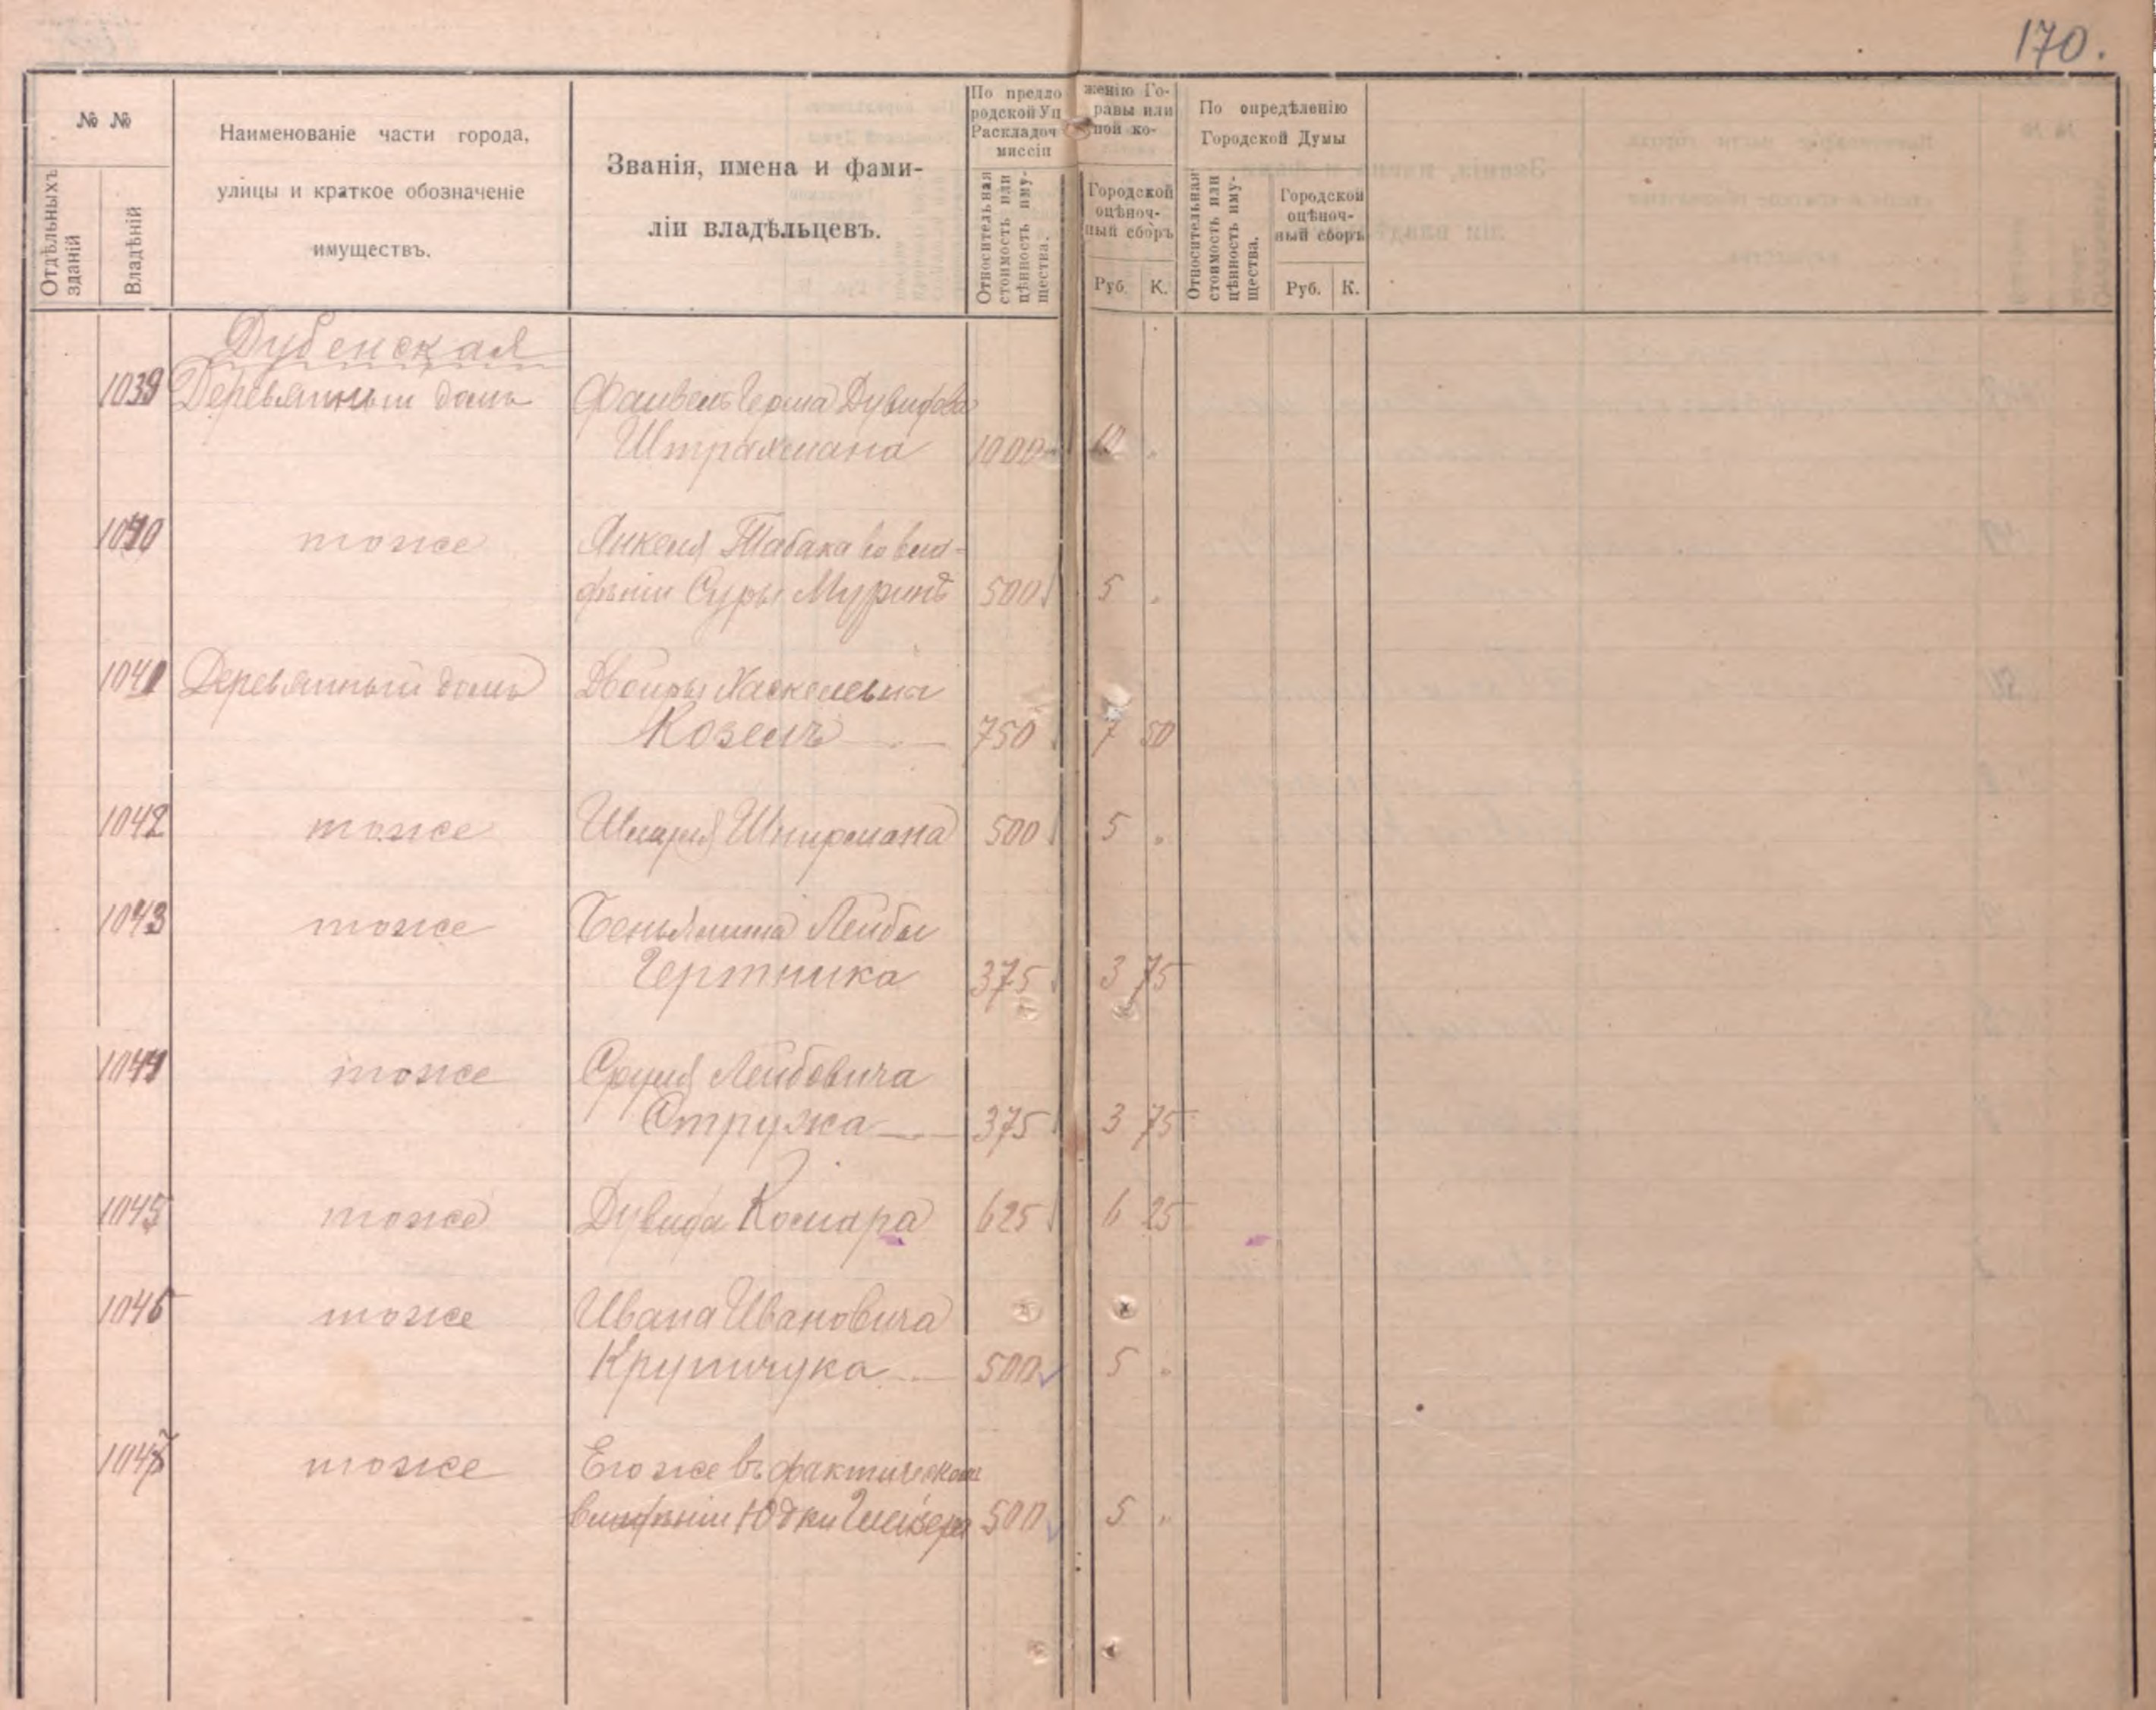 170.
№ №
Отдѣльныхъ зданій
Владѣній
Наименованіе части города,
улицы и краткое обозначеніе
имуществъ.
Званія, имена и фами-
ліи владѣльцевъ.
По предло женію Го-
родской Уп равы или
Раскладоч ной ко-
миссіи
Относительная стоимость или цѣнность иму-щества.
Городской оцѣноч-ный сборъ
Руб. К.
По опредѣленію
Городской Думы
Относительная стоимость или цѣнность иму-щества.
Городской оцѣноч-ный сборъ
Руб. К.
Дубенская
1039 Деревянный домъ Файвель Герша Дувидова
Штрахмана 1000 10 "
1040 тоже Янкеля Табака во вла-
дѣніи Суры Муринъ 500 5 "
1041 Деревянный домъ Двойры Хаскелевна
Козелъ 750 7 50
1042 тоже Шмарія Шнирмана 500 5 "
1043 тоже Беньямина Лейбы
Чертника 375 3 75
1044 тоже Сруля Лейбовича
Стружа 375 3 75
1045 тоже Дувида Комара 625 6 25
1046 тоже Ивана Ивановича
Крупчука 500 5 "
1047 тоже Его же въ фактическом
владѣніи Юдки 500 5 "